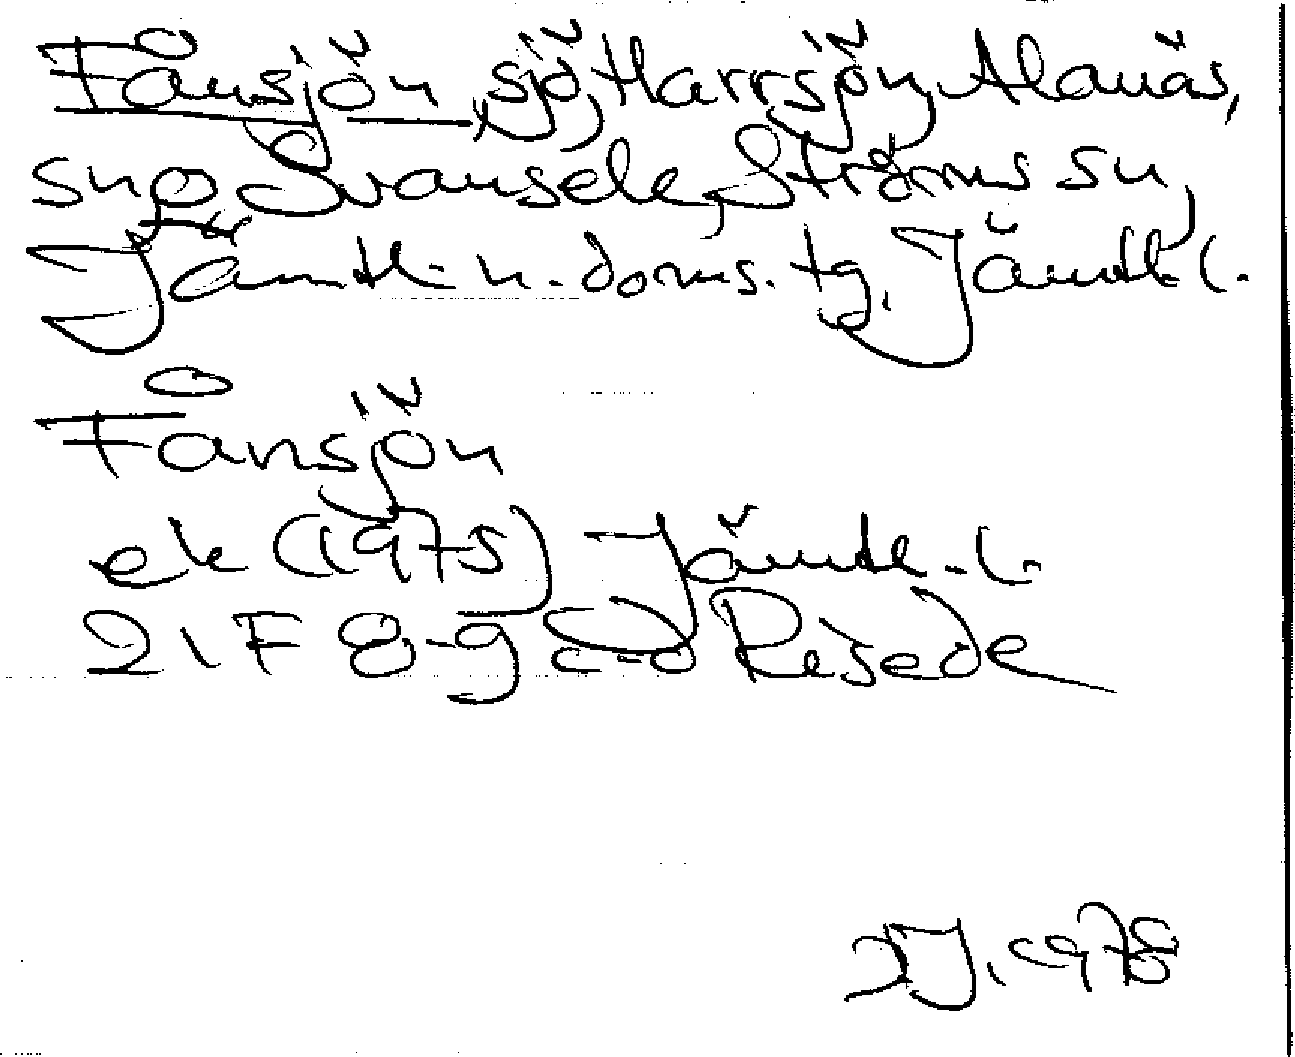 Fånsjön, sjö, Harrsjön, Alanäs,
sn o Svansele, Ströms sn,
Jämtl. n. doms. tg, Jämtl. l.
Fånsjön
ek (1975) Jämtl. l.
21F 8-9 c-d Risede
1978